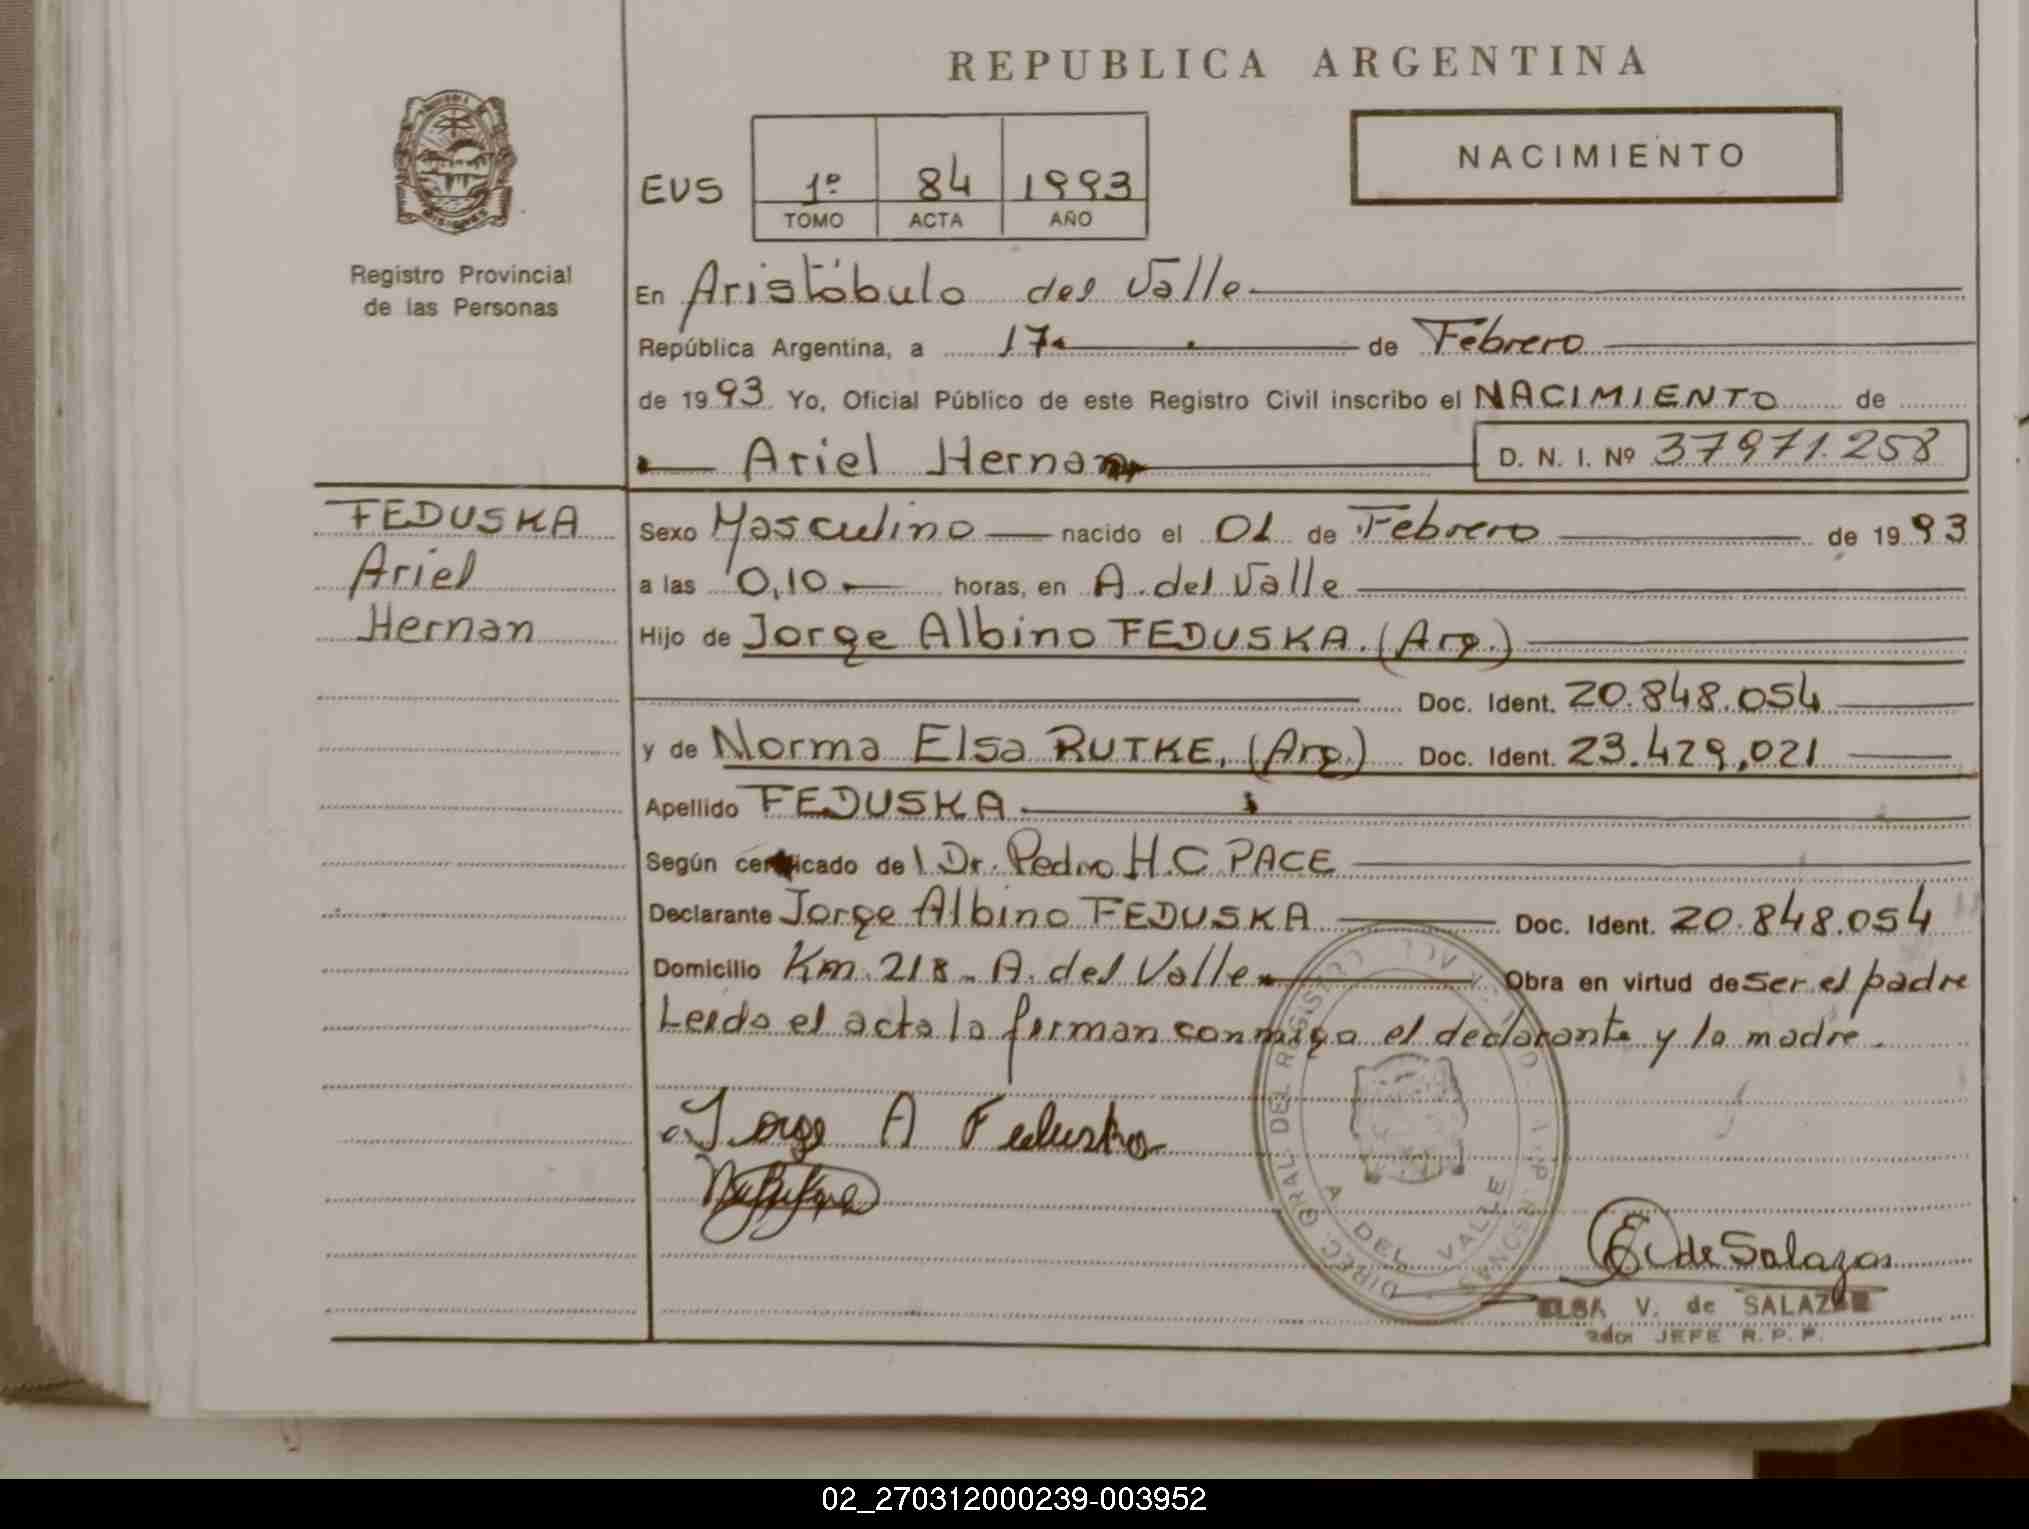 REPUBLICA ARGENTINA
NACIMIENTO
EVS 1º 84 1993
TOMO ACTA AÑO
Registro Provincial
de las Personas
En Aristóbulo del Valle
República Argentina, a 17 de Febrero
de 1993 Yo, Oficial Público de este Registro Civil inscribo el NACIMIENTO de
Ariel Hernan D. N. I. Nº 37971.258
FEDUSKA
Ariel
Hernan
Sexo Masculino nacido el 01 de Febrero de 1993
a las 0,10 horas, en A. del Valle
Hijo de Jorge Albino FEDUSKA. (Arg.)
Doc. Ident. 20.848.054
y de Norma Elsa RUTKE, (Arg.) Doc. Ident. 23.429,021
Apellido FEDUSKA
Según certificado del Dr. Pedro H.C PACE
Declarante Jorge Albino FEDUSKA Doc. Ident. 20.848.054
Domicilio Km. 218 - A. del Valle Obra en virtud de ser el padre
Leida el acta la firman conmigo el declarante y la madre.
Jorge A Feduska
DIREC. GRAL. DEL REGISTRO
A DEL VALLE
E de Salazar
ELSA V. de SALAZAR
JEFE R. P. P.
02_270312000239-003952